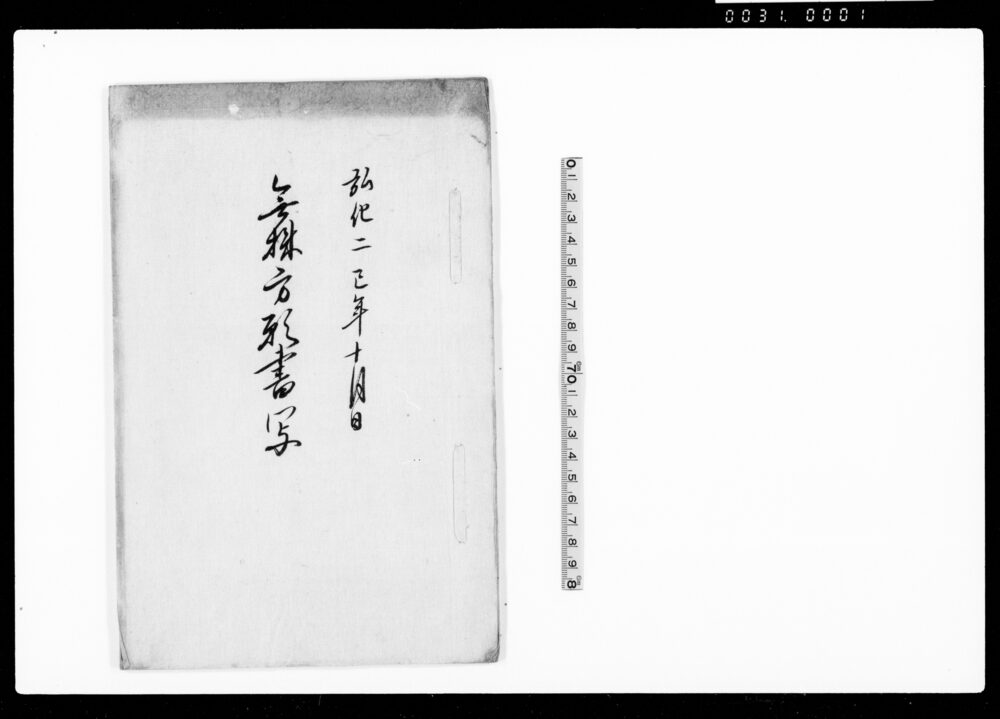 0031. 0001
弘化二巳年十月日
無株方願書写
0 1 2 3 4 5 6 7 8 9 70 1 2 3 4 5 6 7 8 9 8